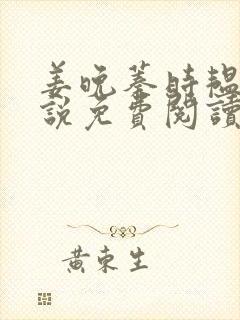 姜晚蓁時韞
說免費閱讀
黃東生